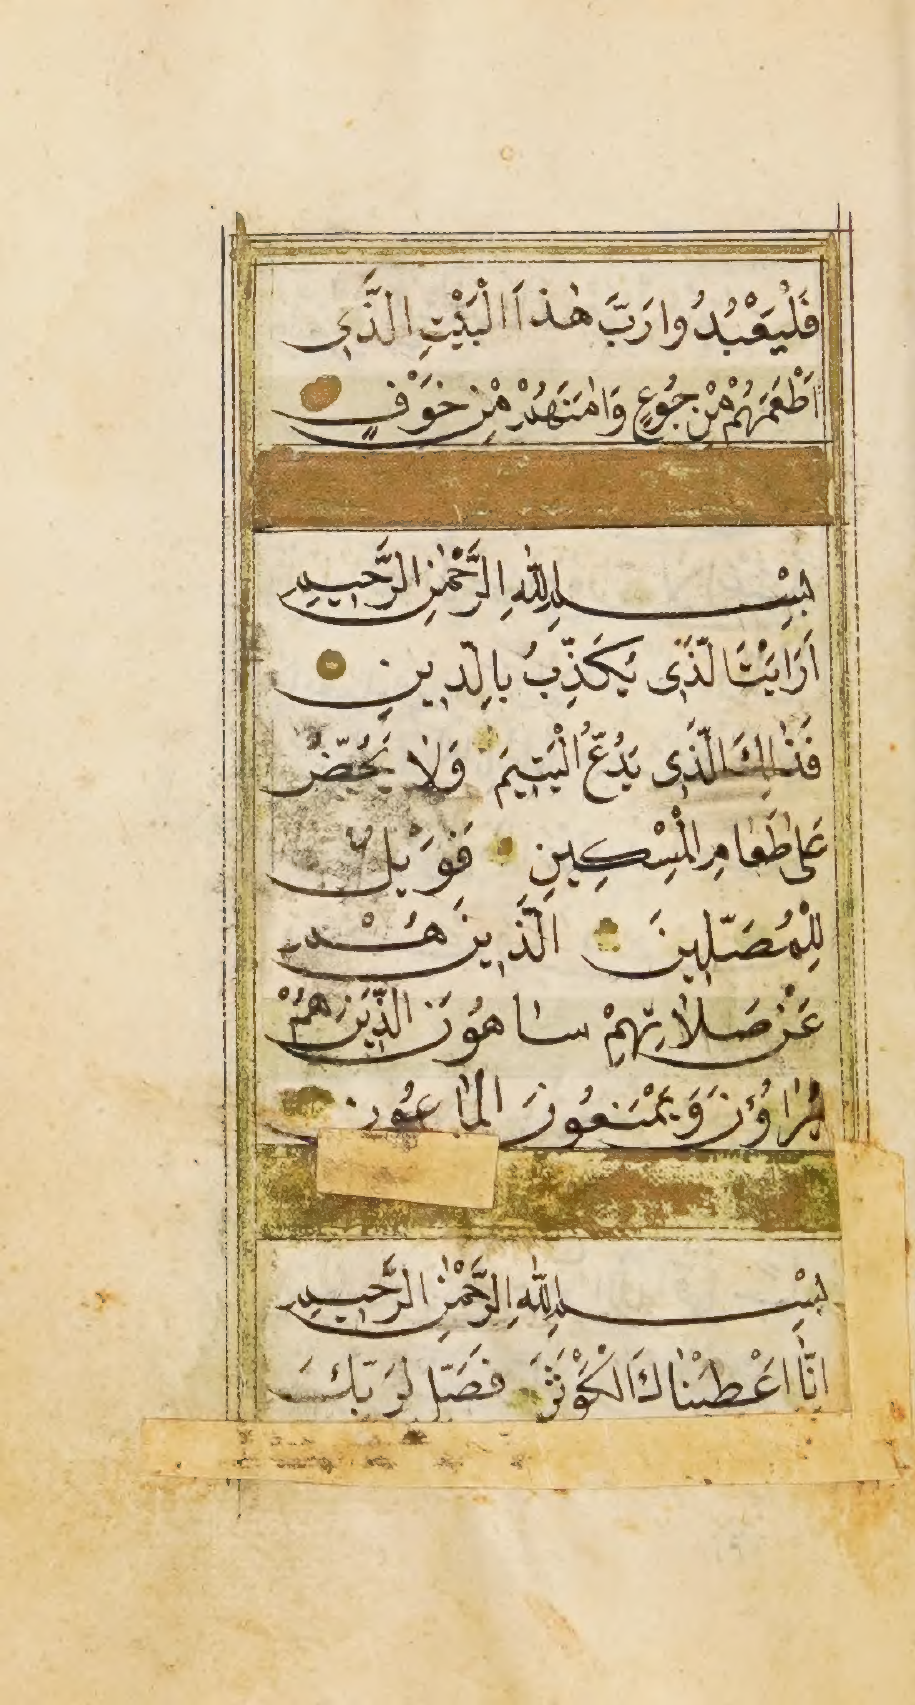 فَلْيَعْبُدُوا رَبَّ هٰذَا الْبَيْتِ الَّذِى
اَطْعَمَهُمْ مِنْ جُوعٍ وَاٰمَنَهُمْ مِنْ خَوْفٍ
بِسْمِ اللّٰهِ الرَّحْمٰنِ الرَّحِيمِ
اَرَاَيْتَ الَّذِى يُكَذِّبُ بِالدِّينِ
فَذٰلِكَ الَّذِى يَدُعُّ الْيَتِيمَ وَلَا يَحُضُّ
عَلٰى طَعَامِ الْمِسْكِينِ فَوَيْلٌ
لِلْمُصَلِّينَ الَّذِينَ هُمْ
عَنْ صَلَاتِهِمْ سَاهُونَ الَّذِينَ هُمْ
يُرَاؤُنَ وَيَمْنَعُونَ الْمَاعُونَ
بِسْمِ اللّٰهِ الرَّحْمٰنِ الرَّحِيمِ
اِنَّا اَعْطَيْنَاكَ الْكَوْثَرَ فَصَلِّ لِرَبِّكَ